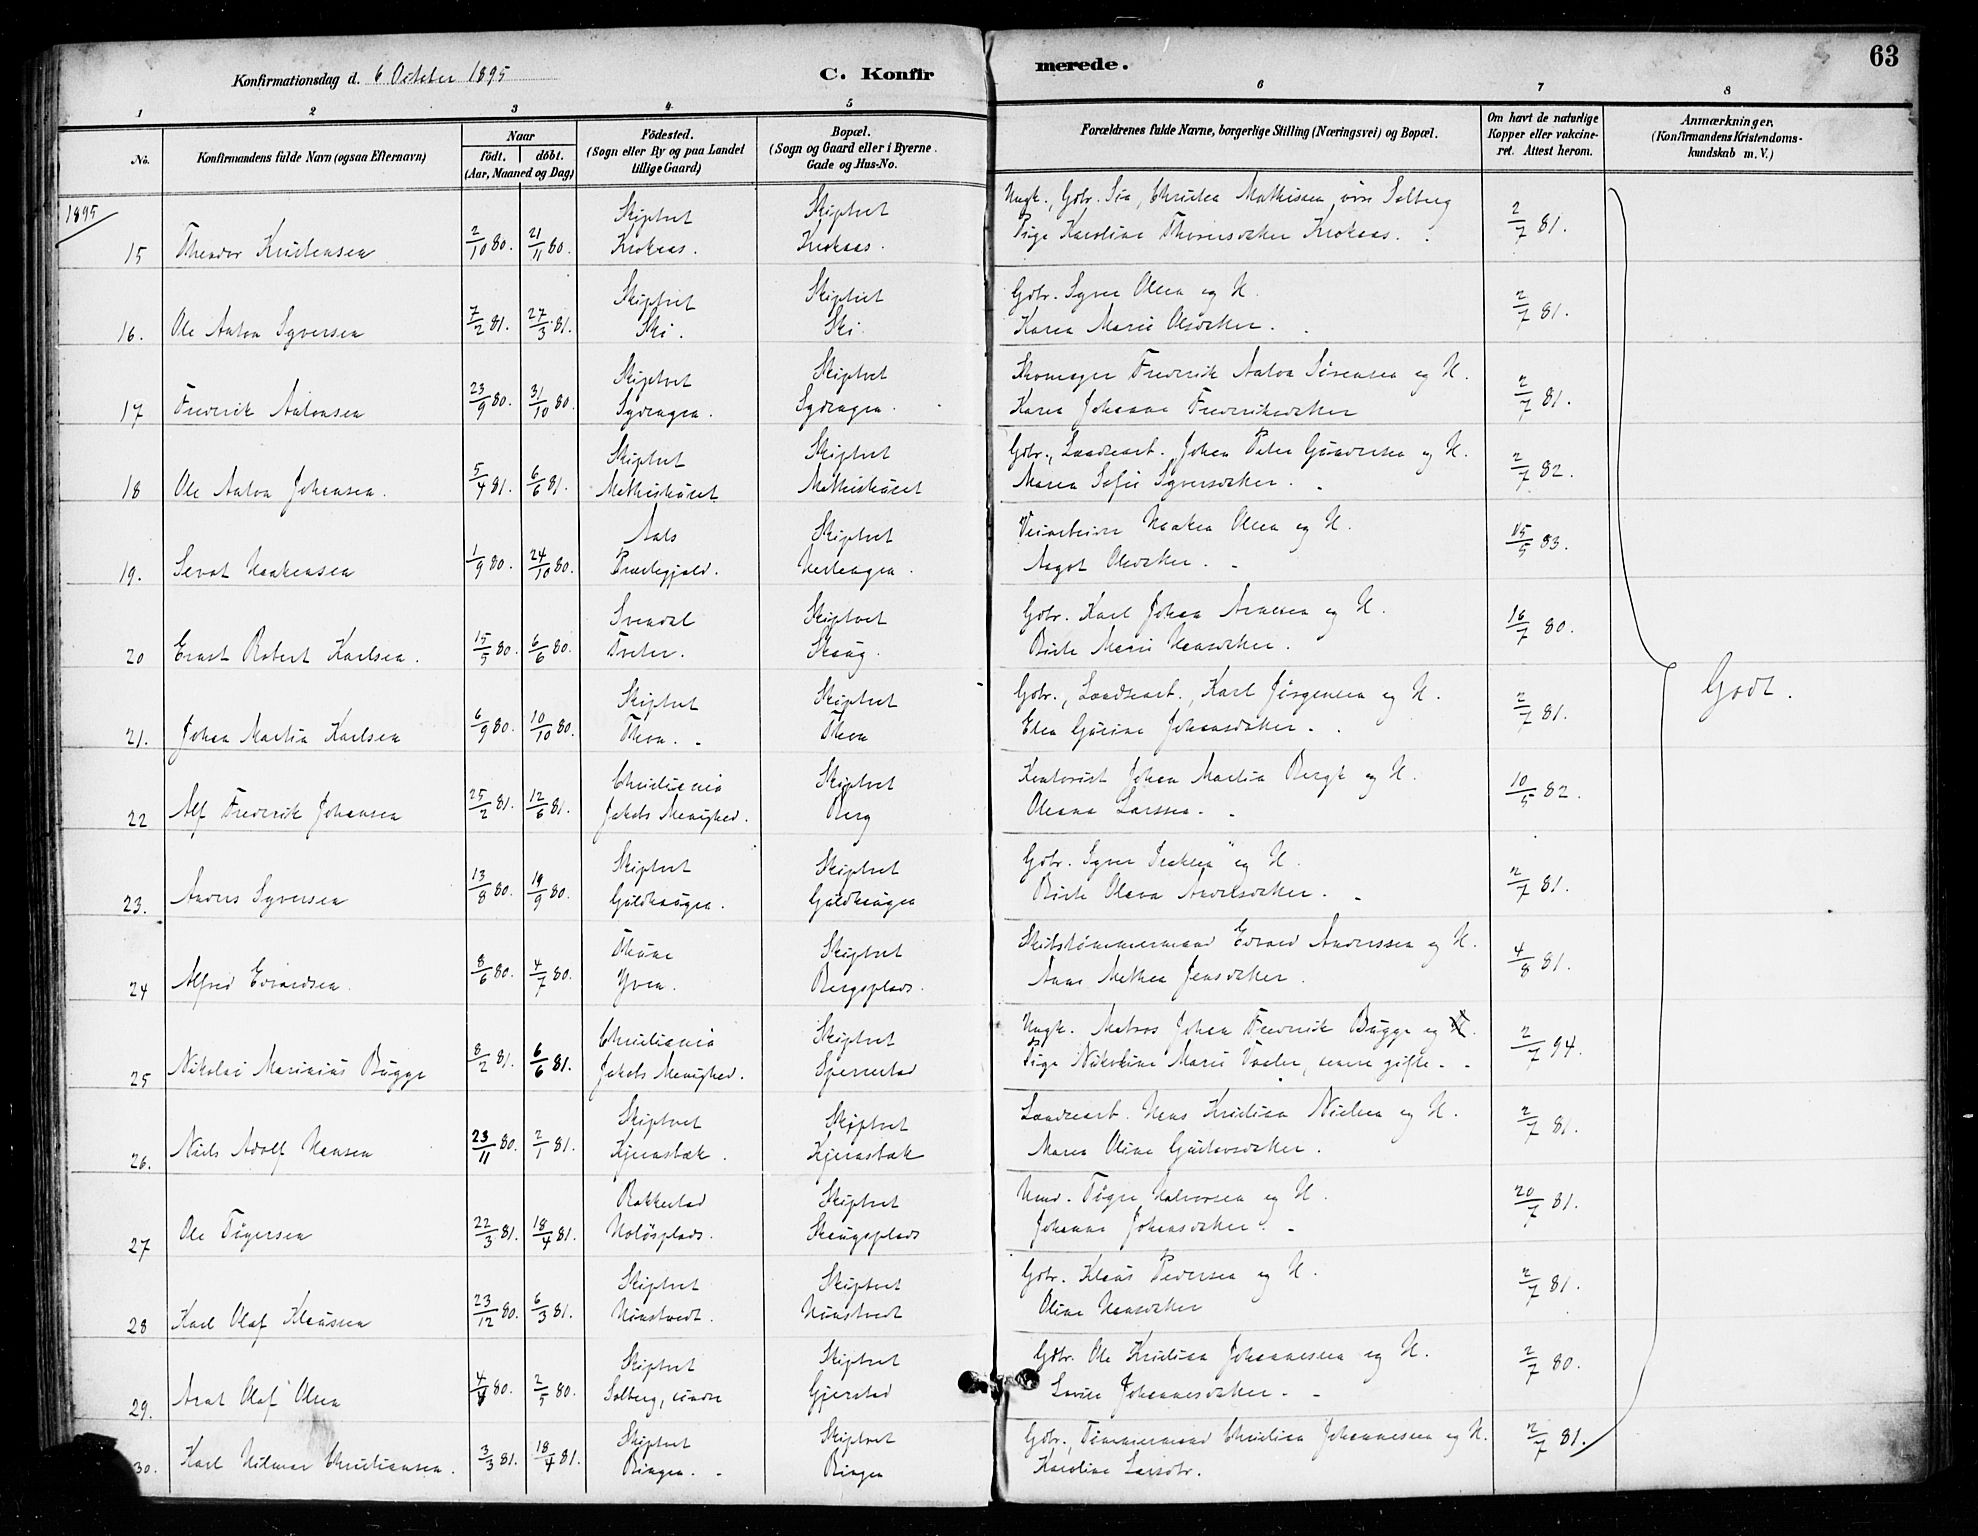 Konfirmationsdag d. 6 October 1895
C. Konfirmerede.
63
1 2 3 4 5 6 7 8
No.
Konfirmandens fulde Navn (ogsaa Efternavn)
Naar
födt. döbt.
(Aar, Maaned og Dag)
Födested.
(Sogn eller By og paa Landet
tillige Gaard)
Bopæl.
(Sogn og Gaard eller i Byerne
Gade og Hus-No.
Forældrenes fulde Navne, borgerlige Stilling (Næringsvei) og Bopæl.
Om havt de naturlige
Kopper eller vakcine-
ret. Attest herom.
Anmærkninger,
(Konfirmandens Kristendoms-
kundskab m. V.)
1895
Skiptvet Skiptvet Ungk., Gbr. Søn, Christen Mathisen, øvre Solberg
15 Theodor Kristensen 2/10 80. 21/11 80. Krokaas. Krokaas. Pige Karoline Thorersdatter Krokaas. 2/7 81.
Skiptvet Skiptvet Gbr. Syver Olsen og H.
16. Ole Anton Syversen 7/2 81. 27/3 81. Ski. Ski. Karen Marie Olsdatter. 2/7 81.
Skiptvet Skiptvet Skomager Frederik Anton Sørensen og H.
17 Frederik Antonsen 23/9 80. 31/10 80. Sydengen. Sydengen. Karen Johanne Frederiksdatter 2/7 81.
Skiptvet Skiptvet Gbr., Landhart. Johan Peter Gundersen og H.
18 Ole Anton Johansen. 5/4 81. 6/6 81. Mathishuset Mathishuset Maren Sofie Syversdatter. 2/7 82.
Aals Skiptvet Veiarbeider Haaken Olsen og H.
19. Sevat Haakensen 1/9 80. 24/10 80. Præstegjeld. Aagot Olsdatter. 15/5 83.
Svendal Skiptvet Gbr. Karl Johan Arnesen og H.
20 Ernst Robert Karlsen. 15/5 80. 6/6 80. Tveter. Skaug. Birte Marie Hansdatter. 16/7 80.
Skiptvet Skiptvet Gbr., Landhart., Karl Jörgensen og H.
21. Johan Martin Karlsen 6/9 80. 10/10 80. Thon. Thon Elen Gurine Johansdatter. 2/7 81.
Christiania Skiptvet Kontorist Johan Martin Bergh og H.
22 Alf Frederik Johansen 25/2 81. 12/6 81. Jakobs Menighed. Berg Oleana Larsen. 10/5 82.
Skiptvet Skiptvet Gbr. Syver Iraksen og H.
23. Anders Syversen 13/8 80. 19/9 80. Guldhaugen. Guldhaugen Birte Olava Andersdatter. 2/7 81.
Thune Skiptvet Skibstømmermand Edvard Anderssen og H.
24 Alfred Edvardsen. 8/6 80. 4/7 80. Yven. Bergsplads. Anne Mathea Jensdatter. 4/8 81.
Christiania Skiptvet Ungk. Matros Johan Frederik Bugge og
25 Nikolai Marinius Bugge 8/2 81. 6/6 81. Jakobs Menighed. Spernstad Pige Nikoline Marie Vaaler, senere gifte. 2/7 94.
Skiptvet Skiptvet Landhart. Hans Kristian Nielsen og H.
26. Niels Adolf Hansen 23/11 80. 2/1 81. Kjernsbæk. Kjernsbæk Maren Oline Gustavsdatter. 2/7 81.
Rakkestad Skiptvet Husmd. Tøger Halvorsen og H.
27 Ole Tögersen 22/3 81. 18/4 81. Holøsplads. Skaugsplads Johanne Johansdatter. 20/7 81.
Skiptvet Skiptvet Gbr. Klaus Pedersen og H.
28 Karl Olaf Klausen 23/12 80. 6/3 81. Nönstvedt. Nunstvedt Oline Hansdatter 2/7 81.
Skiptvet Skiptvet Gbr. Ole Kristian Johannesen og H.
29. Arnt Olaf Olsen 4/4 80. 2/5 80. Solberg, nedre Gjerstad Lovise Johannesdatter. 2/7 80.
Skiptvet Skiptvet Gbr., Tömmermand Christian Johannesen og H.
30. Karl Hilmar Christiansen. 3/3 81. 18/4 81. Bingen. Bingen Karoline Larsdtr. 2/7 81.
Godt.